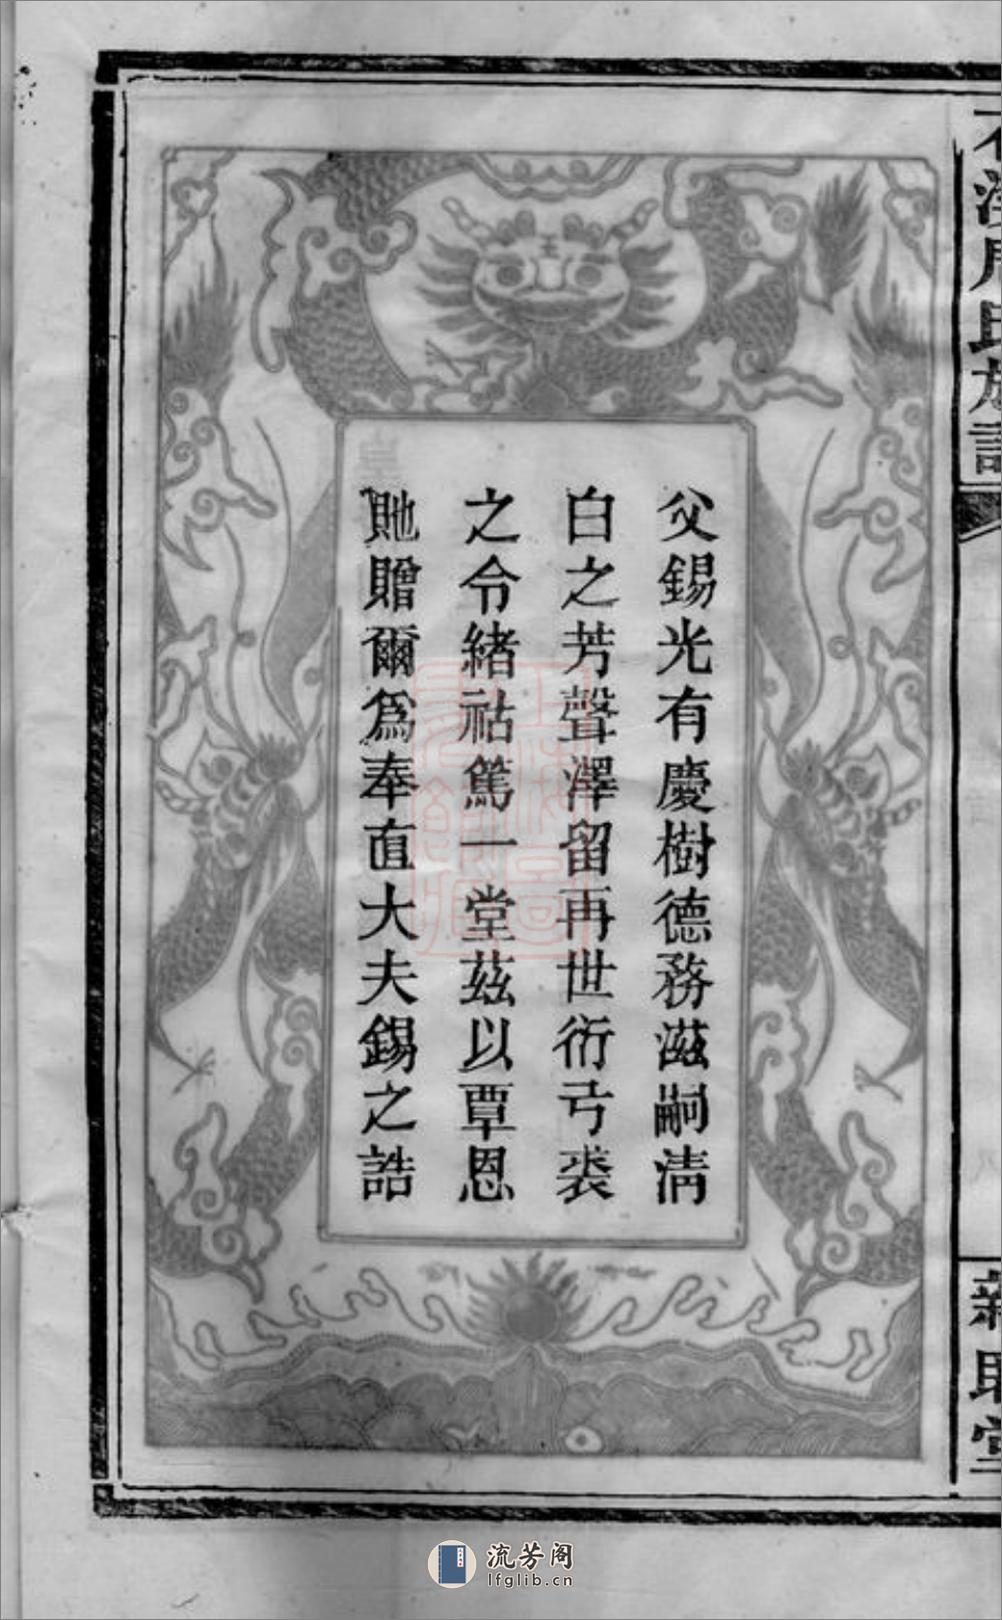 父錫光有慶樹德務滋嗣清
白之芳聲澤留再世衍弓裘
之令緒祜篤一堂茲以覃恩
貤贈爾爲奉直大夫錫之誥
流芳阁
lfglib.cn